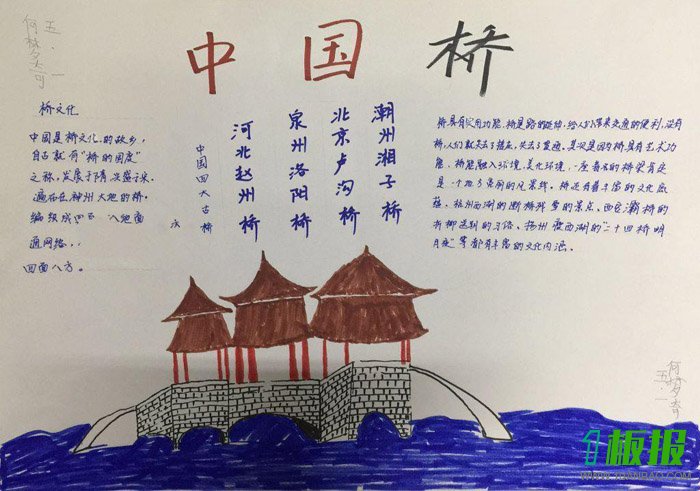 中国桥
五.一
桥文化
中国是桥文化的故乡，
自古就有“桥的国度”
之称，发展于隋，兴盛于宋.
遍布在神州大地的桥，
编织成四 八
通网络，，
四面八方。
中国四大古桥
河北赵州桥
泉州洛阳桥
北京卢沟桥
潮州湘子桥
桥具有实用功能，桥是路的延伸，给人们带来交通的便利，没有
桥，人们就失去了 ，失去了 通，其次是因为桥具有艺术功
能，桥能融入环境，美化环境，一座著名的桥梁肯定
是一个地方亮丽的风景线。桥还有着丰富的文化底
蕴，杭州西湖的断桥残雪的景点、西安灞桥的
折柳送别的习俗、扬州瘦西湖的“二十四桥明
月夜”等都有丰富的文化内涵。
五.一
板报